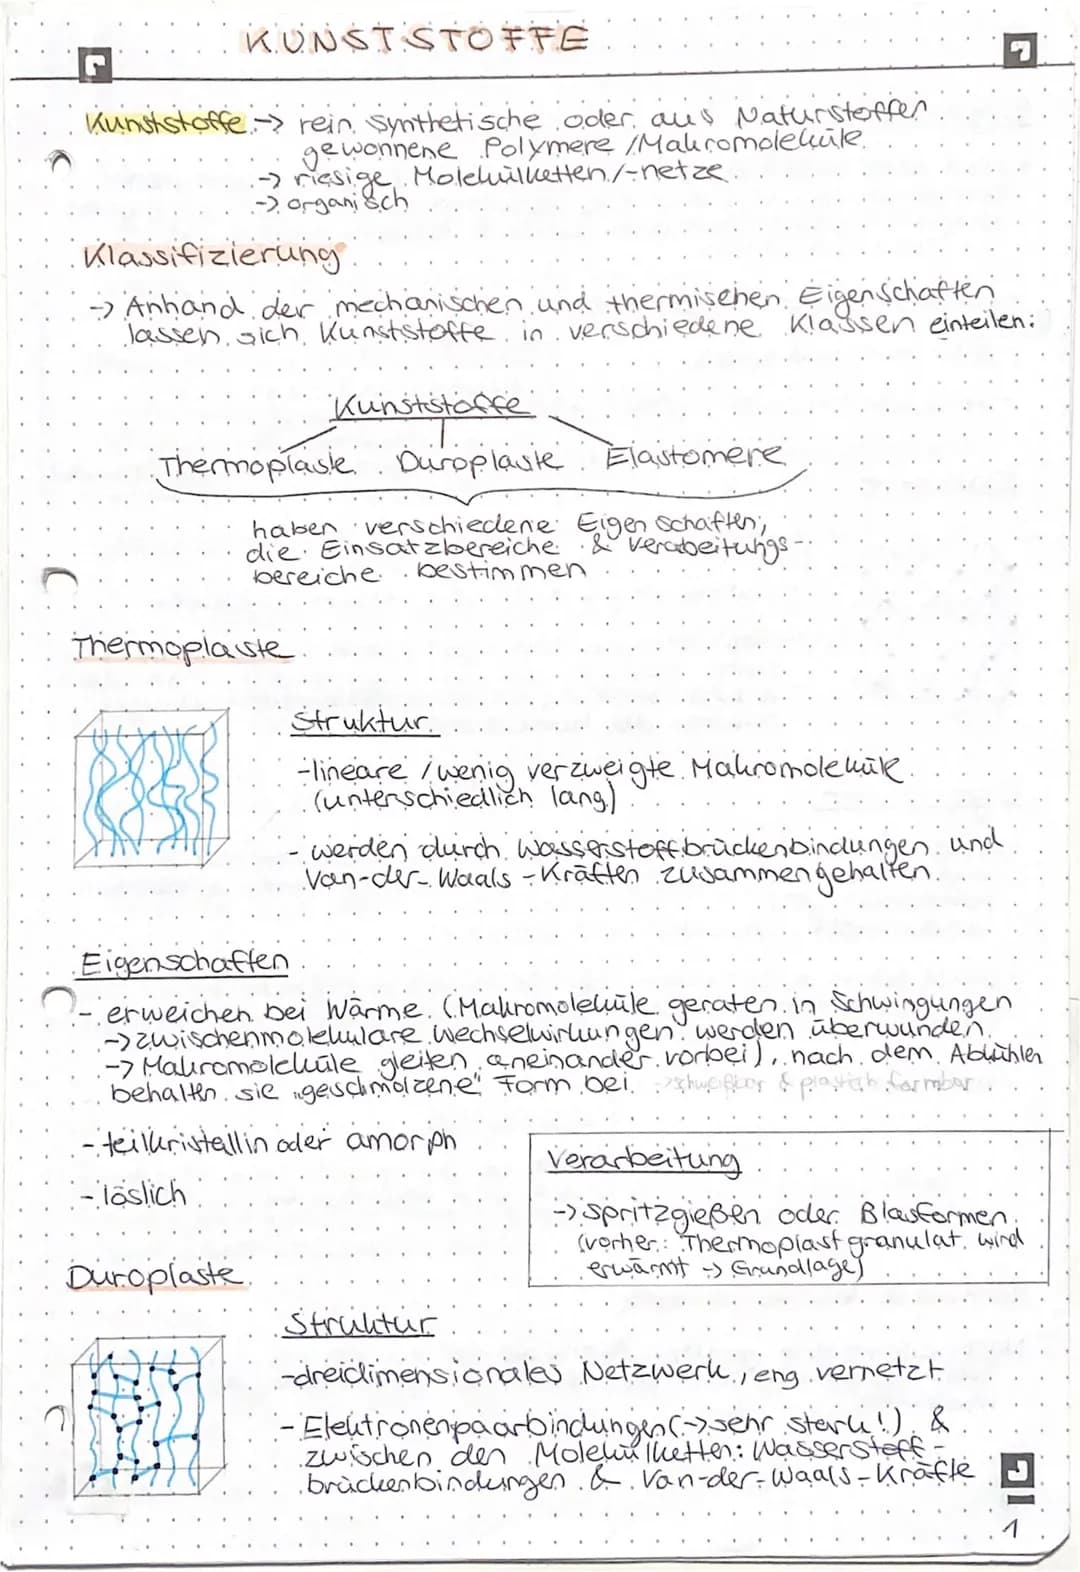 KUNSTSTOFFE
Kunststoffe → rein synthetische oder aus Naturstoffen
gewonnene Polymere / Makromoleküle
→ riesige Molekülketten/-netze
→ organisch
Klassifizierung
→ Anhand der mechanischen und thermischen Eigenschaften
lassen sich Kunststoffe in verschiedene Klassen einteilen:
Kunststoffe
Thermoplaste Duroplaste Elastomere
haben verschiedene Eigenschaften,
die Einsatzbereiche & Verabeitungs-
bereiche bestimmen
Thermoplaste
Struktur
- lineare / wenig verzweigte Makromoleküle
(unterschiedlich lang)
- werden durch Wasserstoffbrückenbindungen und
Van-der-Waals-Kräften zusammengehalten
Eigenschaften
- erweichen bei Wärme (Makromoleküle geraten in Schwingungen
→ zwischenmolekulare Wechselwirkungen werden überwunden
→ Makromoleküle gleiten aneinander vorbei), nach dem Abkühlen
behalten sie „geschmolzene" Form bei → schweißbar & plastisch formbar
- teilkristallin oder amorph
- löslich
Verarbeitung
→ spritzgießen oder Blasformen
(vorher: Thermoplastgranulat wird
erwärmt → Grundlage)
Duroplaste
Struktur
- dreidimensionales Netzwerk, eng vernetzt
- Elektronenpaarbindungen (→ sehr stark!) &
zwischen den Molekülketten: Wasserstoff-
brückenbindungen & Van-der-Waals-Kräfte
1